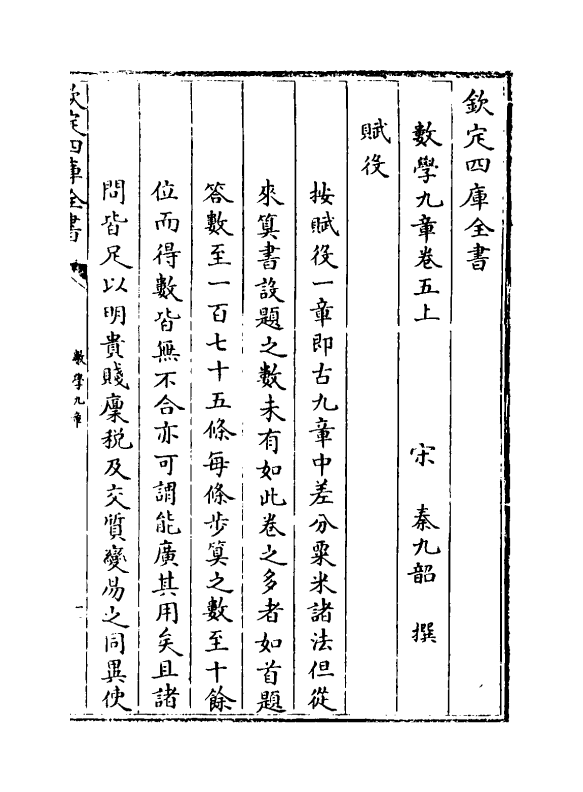 欽定四庫全書
數學九章卷五上
宋 秦九韶 撰
賦役
按賦役一章即古九章中差分粟米諸法但從
來算書設題之數未有如此卷之多者如首題
答數至一百七十五條每條步算之數至十餘
位而得數皆無不合亦可謂能廣其用矣且諸
問皆足以明貴賤廩税及交質變易之同異使
欽定四庫全書
數學九章
一